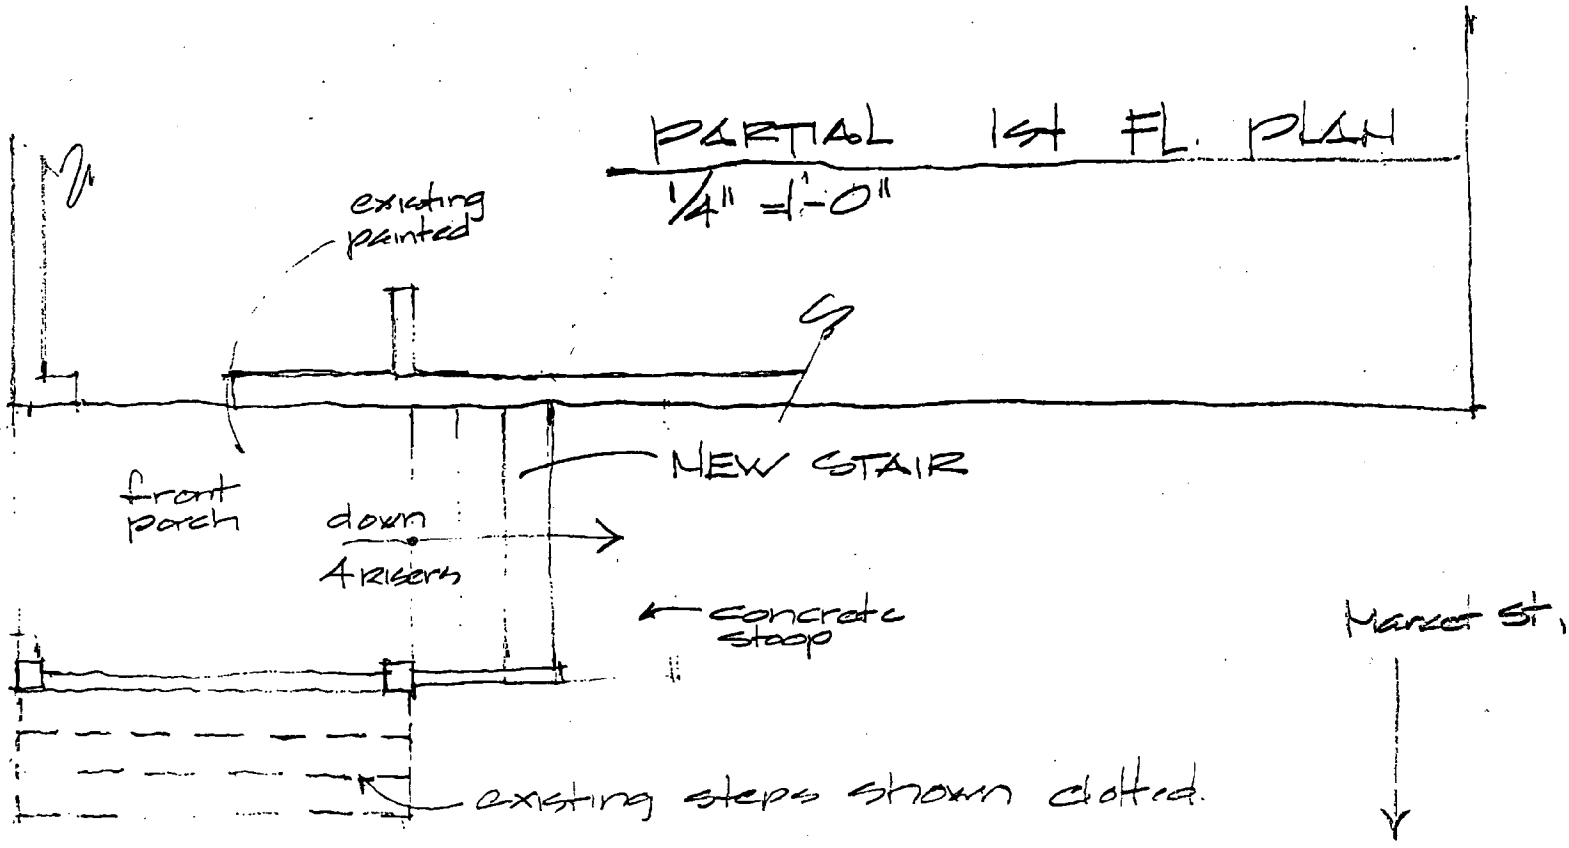 PARTIAL 1st FL. PLAN
1/4" = 1'-0"
existing
painted
NEW STAIR
front
porch
down
4 RISERS
concrete
stoop
Market St.
existing steps shown dotted.